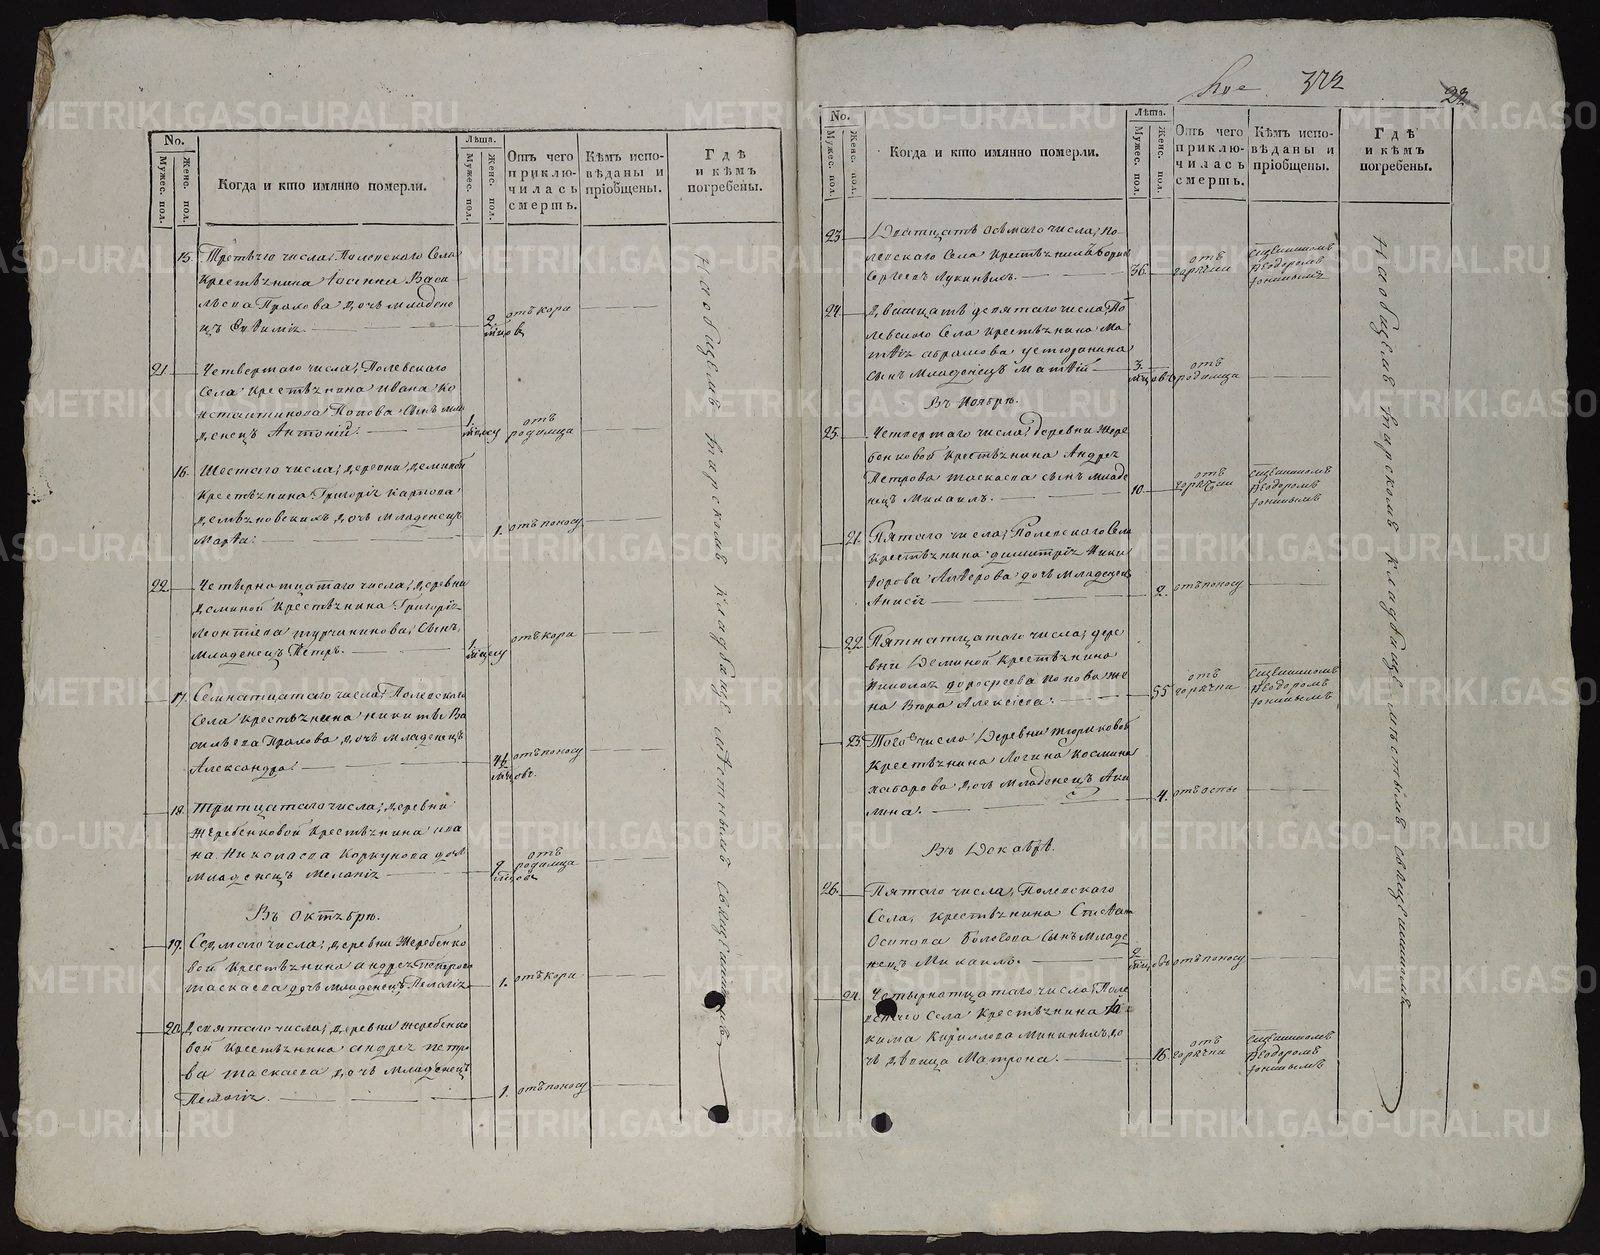 No.
Мужес. пол.
Женс. пол.
Когда и кто имянно померли.
Лѣта.
Мужес. пол.
Женс. пол.
Отъ чего
приклю-
чилась
смерть.
Кѣмъ испо-
вѣданы и
пріобщены.
Гдѣ
и кѣмъ
погребены.
15. Третьяго числа, Полевскаго Села
Крестьянина
дочь младене
цъ Евѳимія 2 отъ кори
21. Четвертаго числа, Полевскаго
Села Крестьянина Ивана Ко
нстантинова Попова сынъ мла
денецъ Антоній. 1. отъ родимца
16. Шестаго числа, деревни Деминой
Крестьянина Григорія Карпова
дочь младенецъ
Марѳа. 1. отъ поносу
22. Четырнатцатаго числа, деревни
Деминой Крестьянина Григорія
Леонтіева Турчанинова, Сынъ,
младенецъ Петръ. 1 отъ кори
17. Семнатцатаго числа, Полевскаго
Села Крестьянина Никиты Ва
сильева дочь младенецъ
Александра. отъ поносу
18. Тритцатаго числа, деревни
Жеребенковой Крестьянина Ива
на Николаева Коркунова дочь
младенецъ Меланія 2. отъ родимца
Въ Октябрѣ.
19. Седмаго числа, деревни Жеребенко
вой Крестьянина Андрея Петрова
Таскаева дочь младенецъ Пелагія 1. отъ кори
20. Девятаго числа, деревни Жеребенко
вой Крестьянина Андрея Петро
ва Таскаева дочь младенецъ
Пелагія. 1. отъ поносу
на общемъ кладбищѣ мѣстнымъ священникомъ
372
22
No.
Мужес. пол.
Женс. пол.
Когда и кто имянно померли.
Лѣта.
Мужес. пол.
Женс. пол.
Отъ чего
приклю-
чилась
смерть.
Кѣмъ испо-
вѣданы и
пріобщены.
Гдѣ
и кѣмъ
погребены.
23. Дватцать осьмаго числа, По
левскаго Села Крестьянинъ Борисъ
Сергеевъ Лукиныхъ. 36. отъ горячки священникомъ Ѳеодоромъ
24. Дватцать девятаго числа, По
левскаго Села Крестьянина Ма
твія Абрамова Устюжанина
сынъ младенецъ Матвій 3. отъ родимца
Въ Ноябрѣ.
25. Четвертаго числа, деревни Жере
бенковой Крестьянина Андрея
Петрова Таскаева сынъ младе
нецъ Михаилъ. 10. отъ горячки священникомъ Ѳеодоромъ
21. Пятаго числа, Полевскаго Села
Крестьянина Димитрія Ники
форова Алферова дочь младенецъ
Анисія 2. отъ поносу
22. Пятнатцатаго числа, дере
вни Деминой Крестьянина
Николая Дорофеева Попова же
на Алексіева. 55 отъ горячки священникомъ Ѳеодоромъ
23. Того числа Деревни
Крестьянина Логина Космина
Хабарова дочь младенецъ Аки
лина. 4. отъ оспы
Въ Декабрѣ.
26. Пятаго числа, Полевскаго
Села, Крестьянина Стефана
Осипова сынъ младе
нецъ Михаилъ. 2 отъ поносу
24. Четырнатцатаго числа, Поле
вскаго Села Крестьянина Іа
кима Кирилова до
чь дѣвица Матрона. 16. отъ горячки священникомъ Ѳеодоромъ
на общемъ кладбищѣ мѣстнымъ священникомъ
METRIKI.GASO-URAL.RU